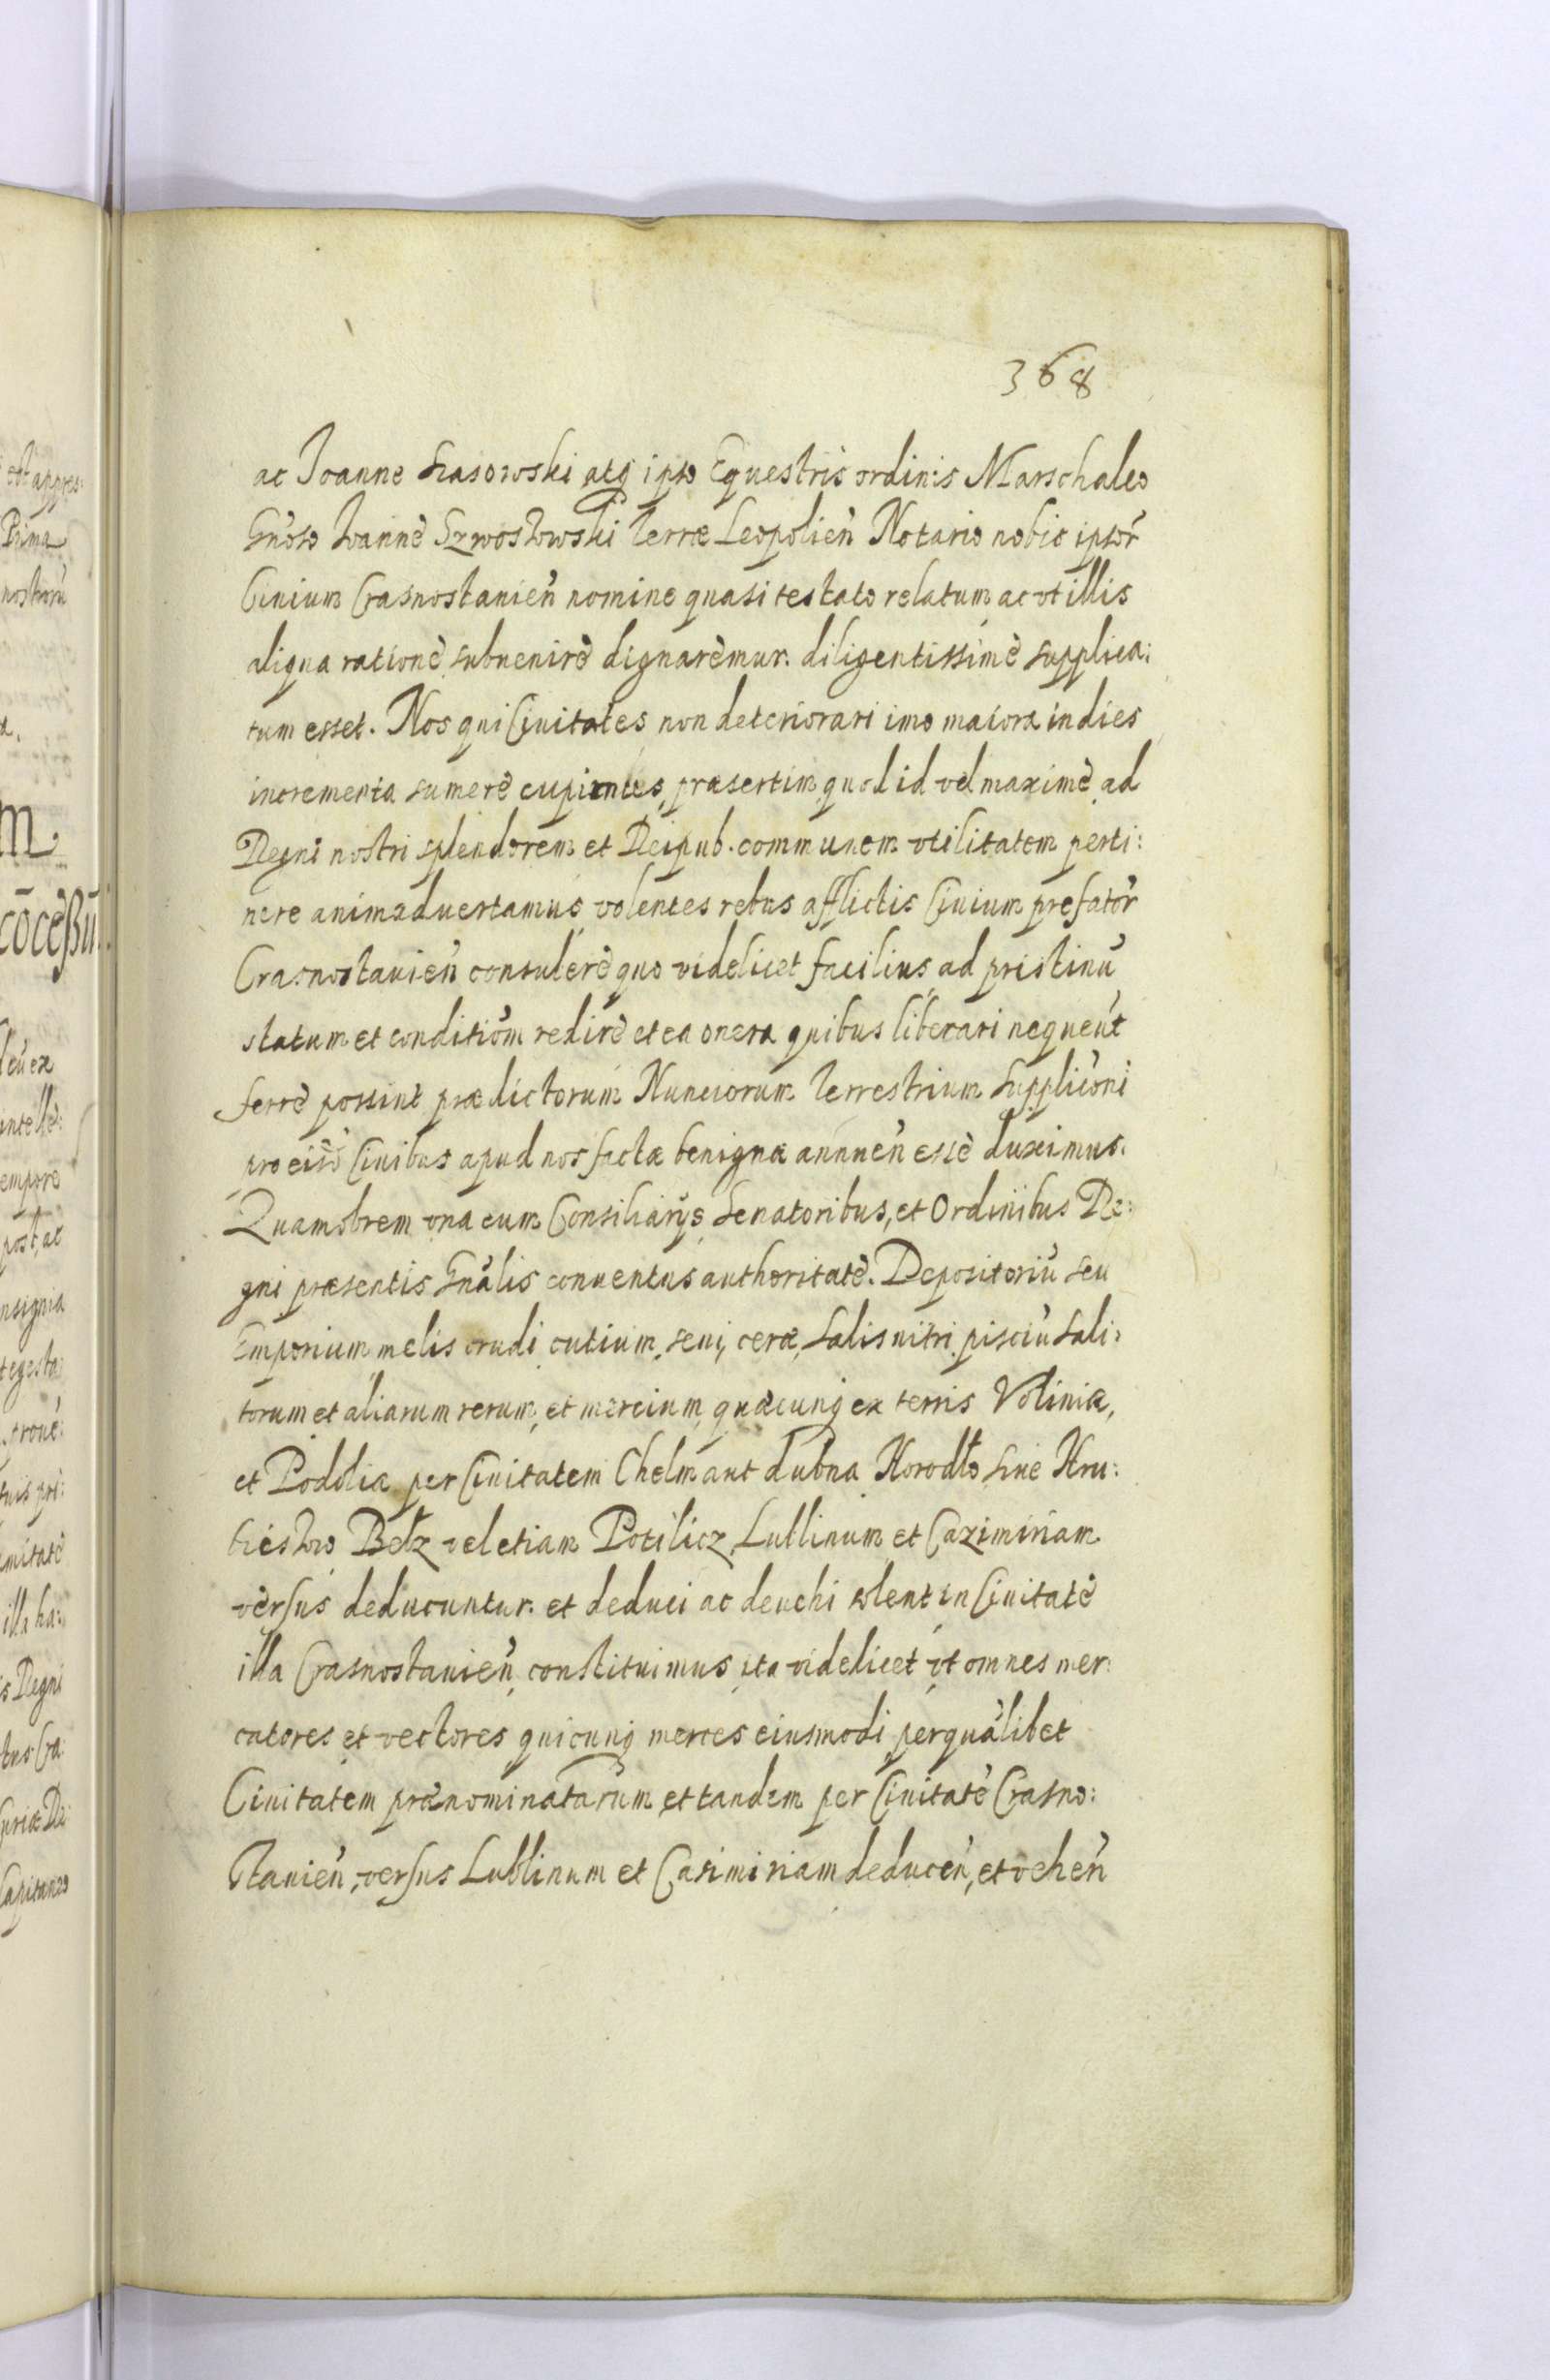 368
ac Joanne Sasowski atq ipso Equestris ordinis Marschaleo
Gnoso Joanne Srwostowski terræ Leopolien Notario nobis ipsor
Ciuium Crasnostauien nomine quasi testato relatum ac vt illis
aliqua ratione subuenire dignaremur. diligentissime supplica:
tum esset. Nos qui Ciuitates non deteriorari imo maiora in dies
incrementa sumere cupientes, præsertim quod id vel maxime ad
Regni nostri splendorem et Reipub. communem vtilitatem perti:
nere animaduertamus, volentes rebus afflictis Ciuium prefator
Crasnostauien consulere quo videlicet facilius ad pristinu
statum et conditiom redire et ea onera quibus liberari nequeut
ferre possint prædictorum Nunciorum terrestrium suppliconi
pro eisd Ciuibus apud nos factæ benigne annuen esse duximus.
Quamobrem vna cum Consiliarijs Senatoribus, et Ordinibus Re:
gni præsentis Gnalis conuentus authoritate. Depositoriu seu
Emporium melis crudi cutium, seui, ceræ, salis nitri, pisciu sali:
torum et aliarum rerum, et mercium, quæcunq ex terris Voliniæ,
et Podoliæ per Ciuitatem Chelm aut dubna Horodło siue Hru:
biesow Bełz vel etiam Potilicz, Lublinum et Cazimiriam
versus deducuntur. et deduci ac deuehi solent in Ciuitate
illa Crasnostauien constituimus ita videlicet vt omnes mer:
catores et vectores quicunq merces eiusmodi per qualibet
Ciuitatem prænominatarum et tandem per Ciuitate Crasno:
stauien, versus Lublinum et Casimiriam deducen, et vehen